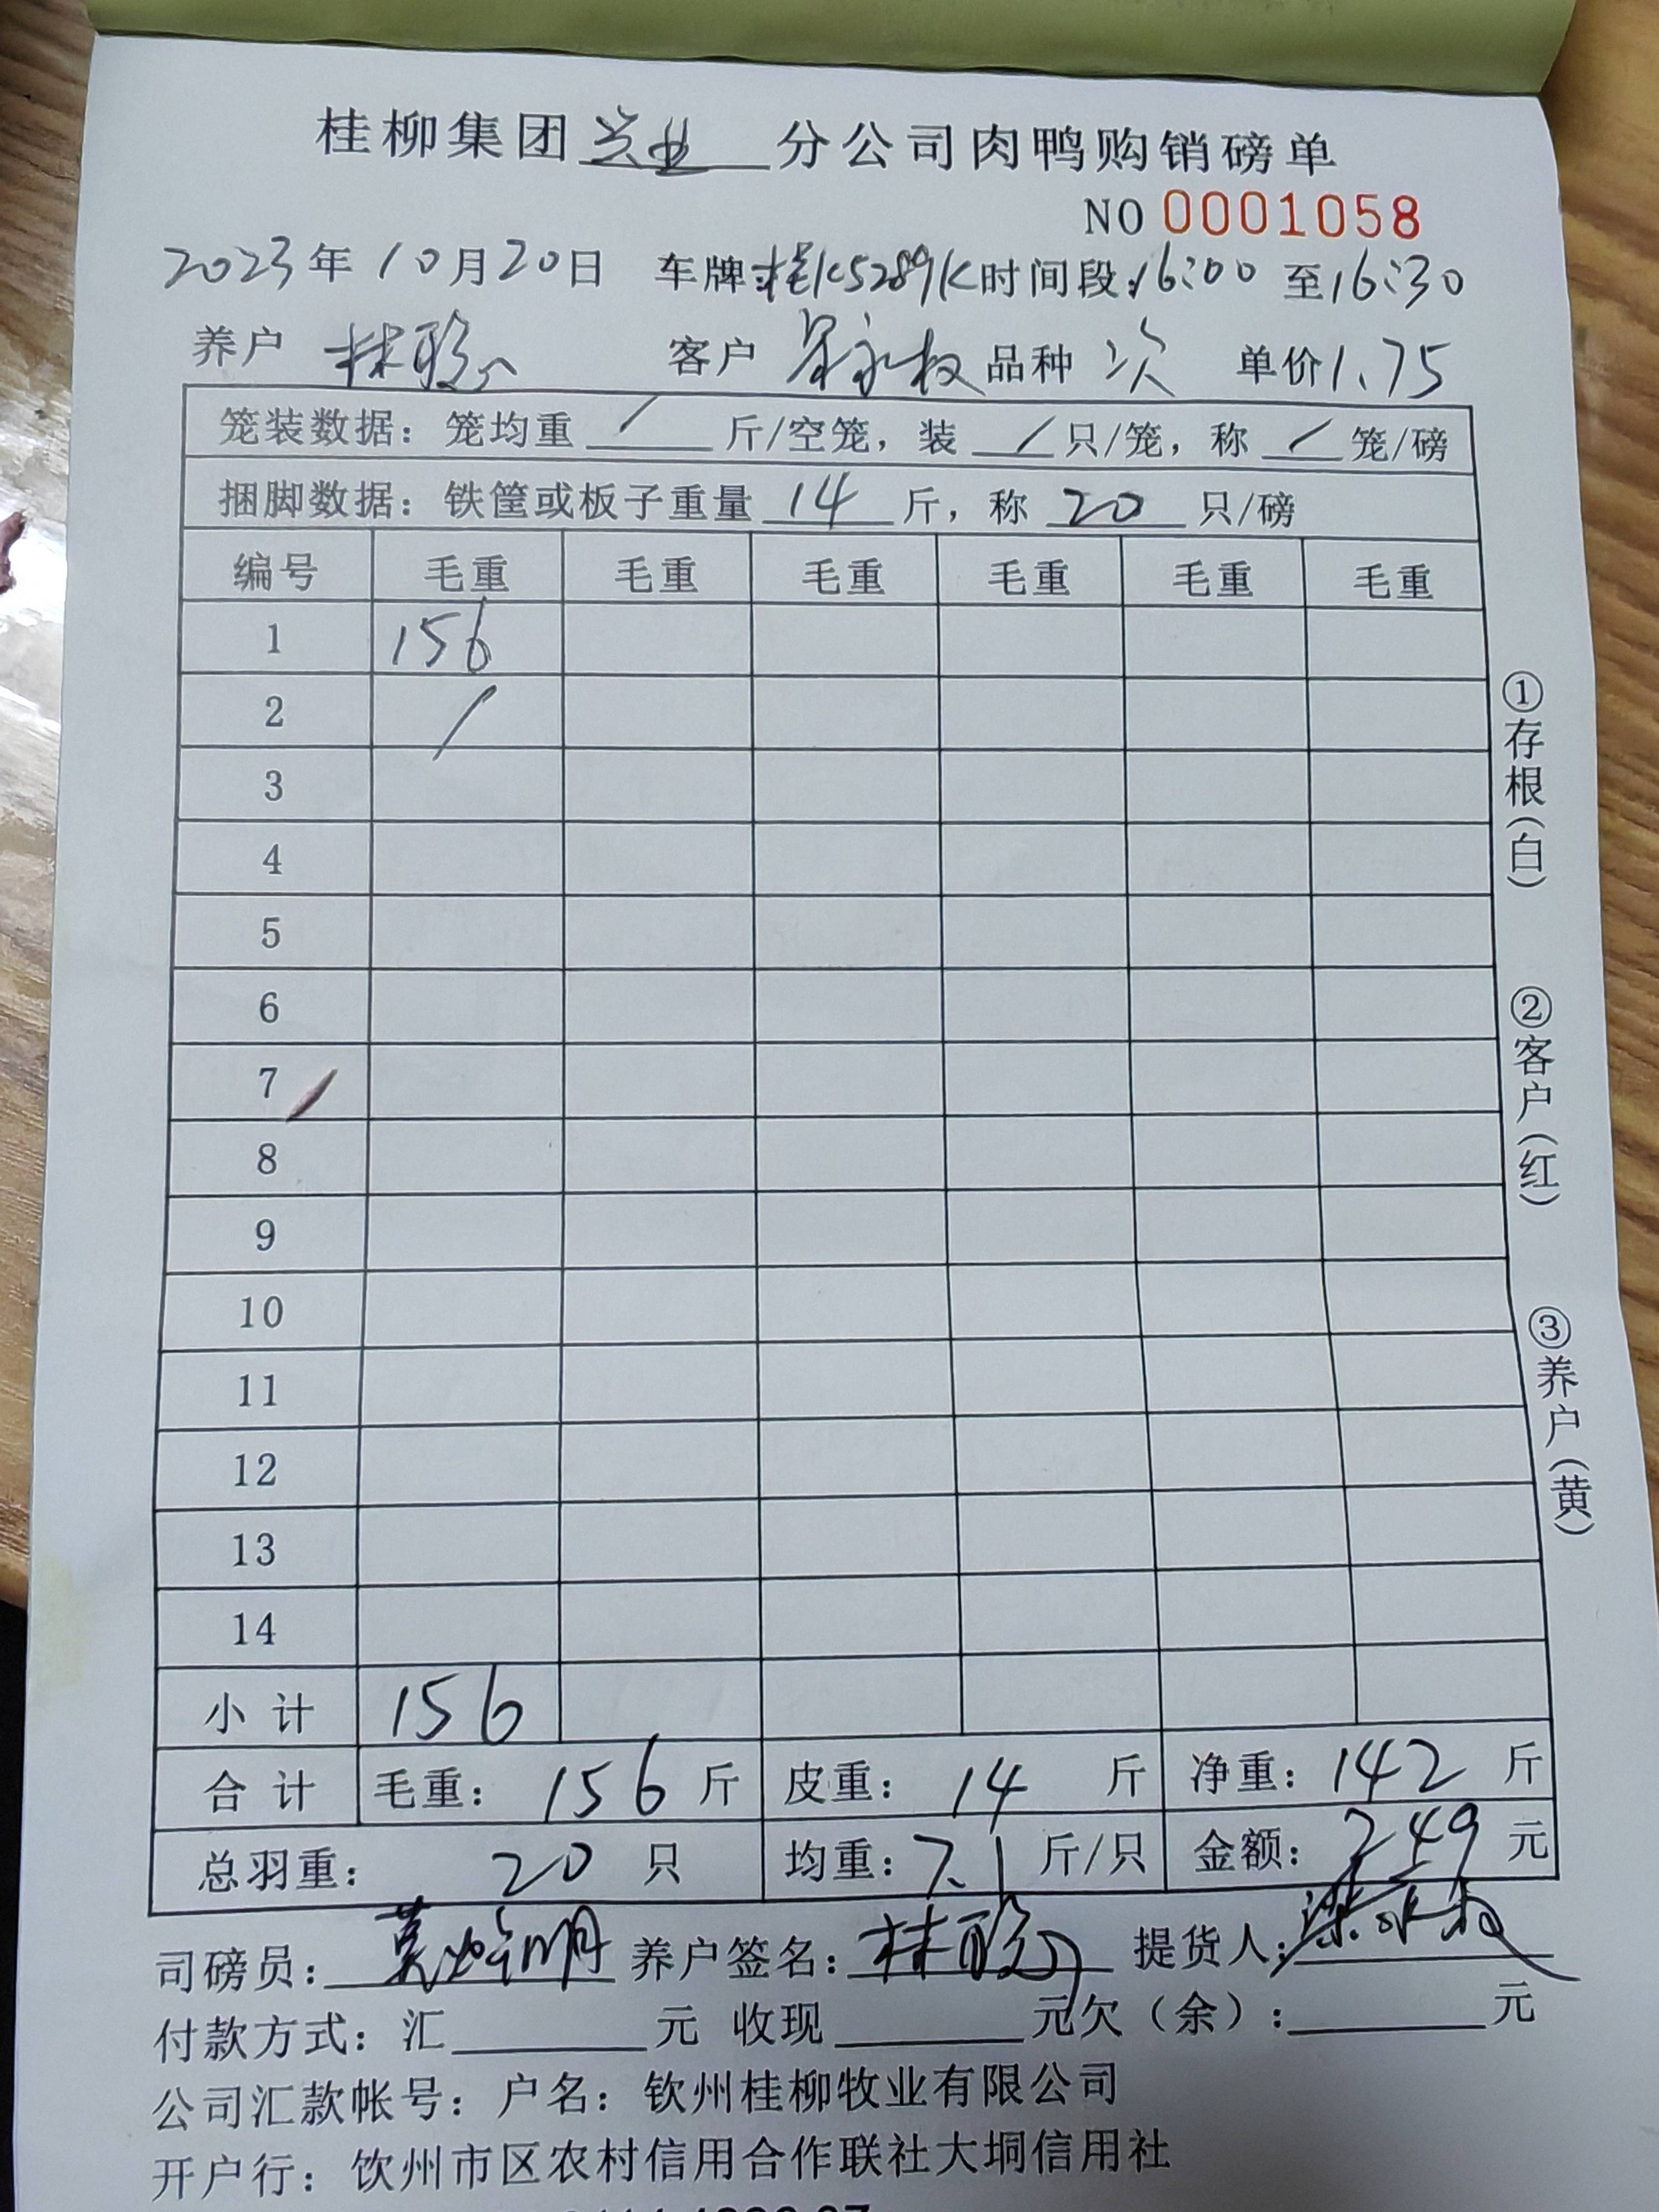 桂柳集团兴业分公司肉鸭购销磅单
NO 0001058
2023年10月20日 车牌:桂K5289K时间段:16:00至16:30
养户 林聪 客户 永权 品种 次 单价1.75
笼装数据：笼均重 / 斤/空笼，装 / 只/笼，称 / 笼/磅
捆脚数据：铁筐或板子重量 14 斤，称 20 只/磅
编号 毛重 毛重 毛重 毛重 毛重 毛重
1 156
2 /
3
4
5
6
7
8
9
10
11
12
13
14
小计 156
合计 毛重：156斤 皮重：14斤 净重：142斤
总羽重：20只 均重：7.1斤/只 金额：249元
司磅员：莫 明 养户签名：林聪 提货人：梁永权
付款方式：汇 元 收现 元欠（余）： 元
公司汇款帐号：户名：钦州桂柳牧业有限公司
开户行：钦州市区农村信用合作联社大垌信用社
①存根（白）
②客户（红）
③养户（黄）